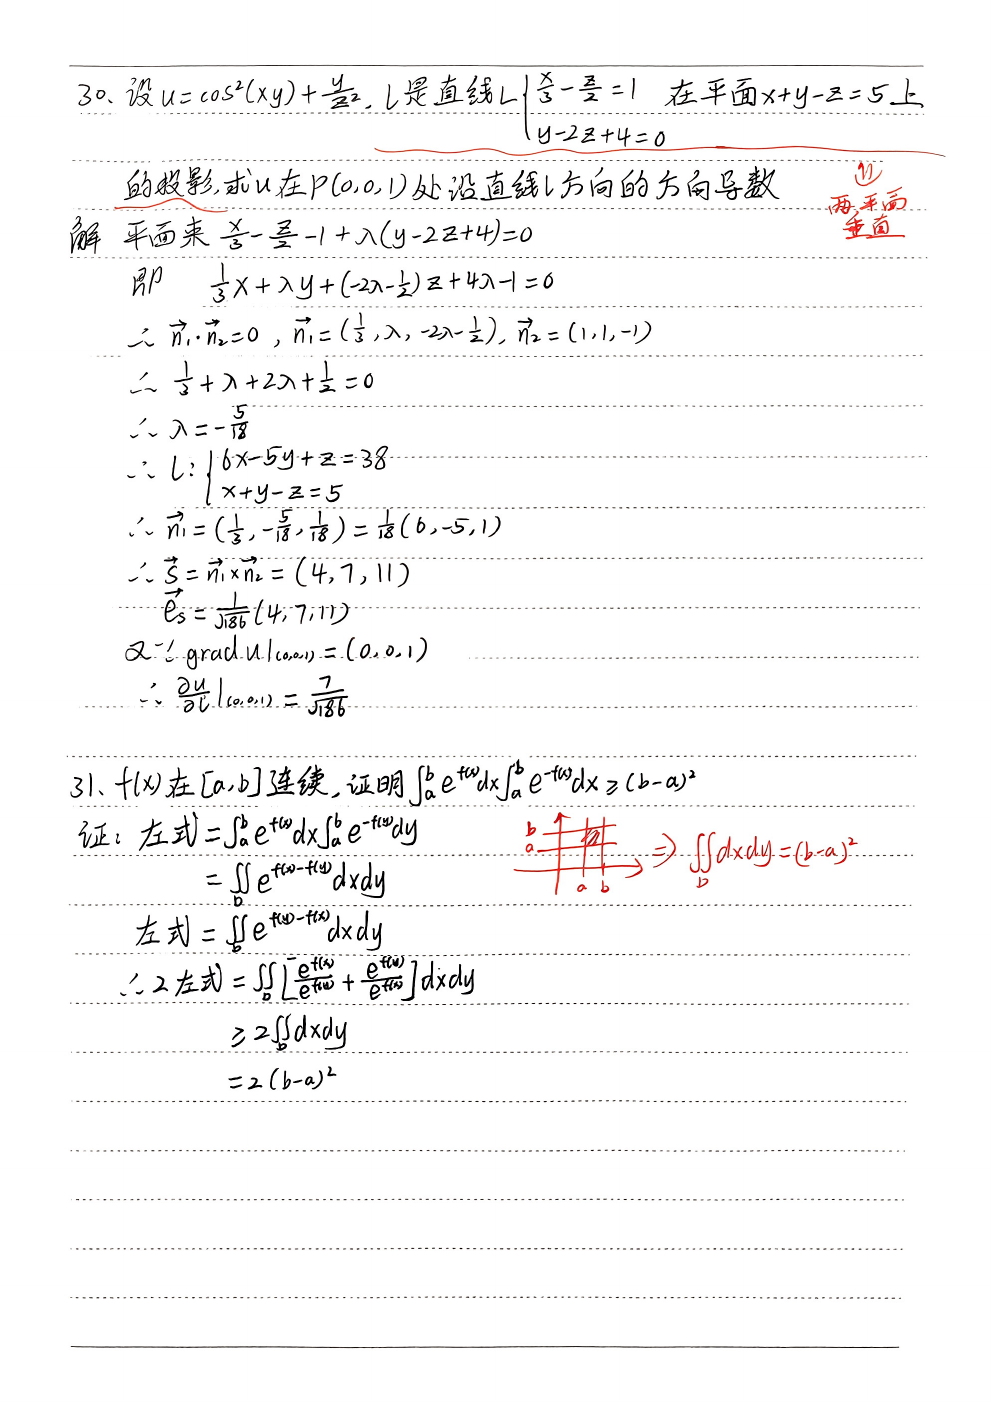 30、设u=cos²(xy)+y/z², l是直线L{x/3-z/2=1 在平面x+y-z=5上
y-2z+4=0
的投影,求u在P(0,0,1)处沿直线l方向的方向导数
⇓
两平面
垂直
解 平面束 x/3-z/2-1+λ(y-2z+4)=0
即 1/3x+λy+(-2λ-1/2)z+4λ-1=0
∴ n₁⃗·n₂⃗=0, n₁⃗=(1/3,λ,-2λ-1/2), n₂⃗=(1,1,-1)
∴ 1/3+λ+2λ+1/2=0
∴ λ=-5/18
∴ l:{6x-5y+z=38
x+y-z=5
∴ n₁⃗=(1/3,-5/18,1/18)=1/18(6,-5,1)
∴ S⃗=n₁⃗×n₂⃗=(4,7,11)
e⃗s=1/√186(4,7,11)
又∵ grad u|(0,0,1)=(0,0,1)
∴ ∂u/∂l|(0,0,1)=7/√186
31、f(x)在[a,b]连续,证明∫ₐᵇe^f(x)dx∫ₐᵇe^-f(x)dx≥(b-a)²
证: 左式=∫ₐᵇe^f(x)dx∫ₐᵇe^-f(y)dy
b
a
a b
⇒ ∬_D dxdy=(b-a)²
=∬_D e^f(x)-f(y)dxdy
左式=∬_D e^f(y)-f(x)dxdy
∴2左式=∬_D[e^f(x)/e^f(y)+e^f(y)/e^f(x)]dxdy
≥2∬_D dxdy
=2(b-a)²